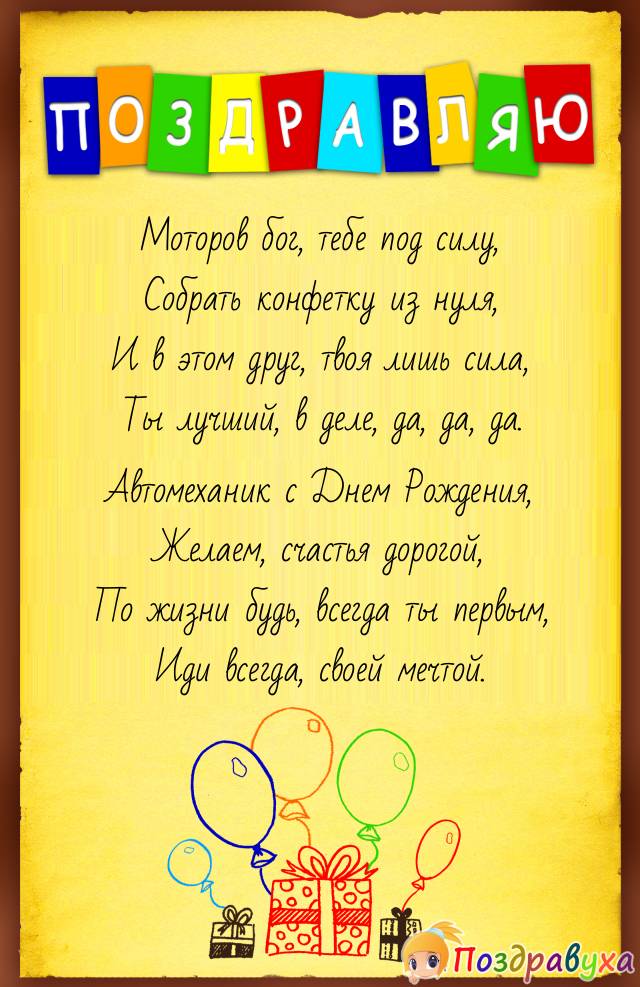 ПОЗДРАВЛЯЮ
Моторов бог, тебе под силу,
Собрать конфетку из нуля,
И в этом друг, твоя лишь сила,
Ты лучший, в деле, да, да, да.
Автомеханик с Днем Рождения,
Желаем, счастья дорогой,
По жизни будь, всегда ты первым,
Иди всегда, своей мечтой.
Поздравуха